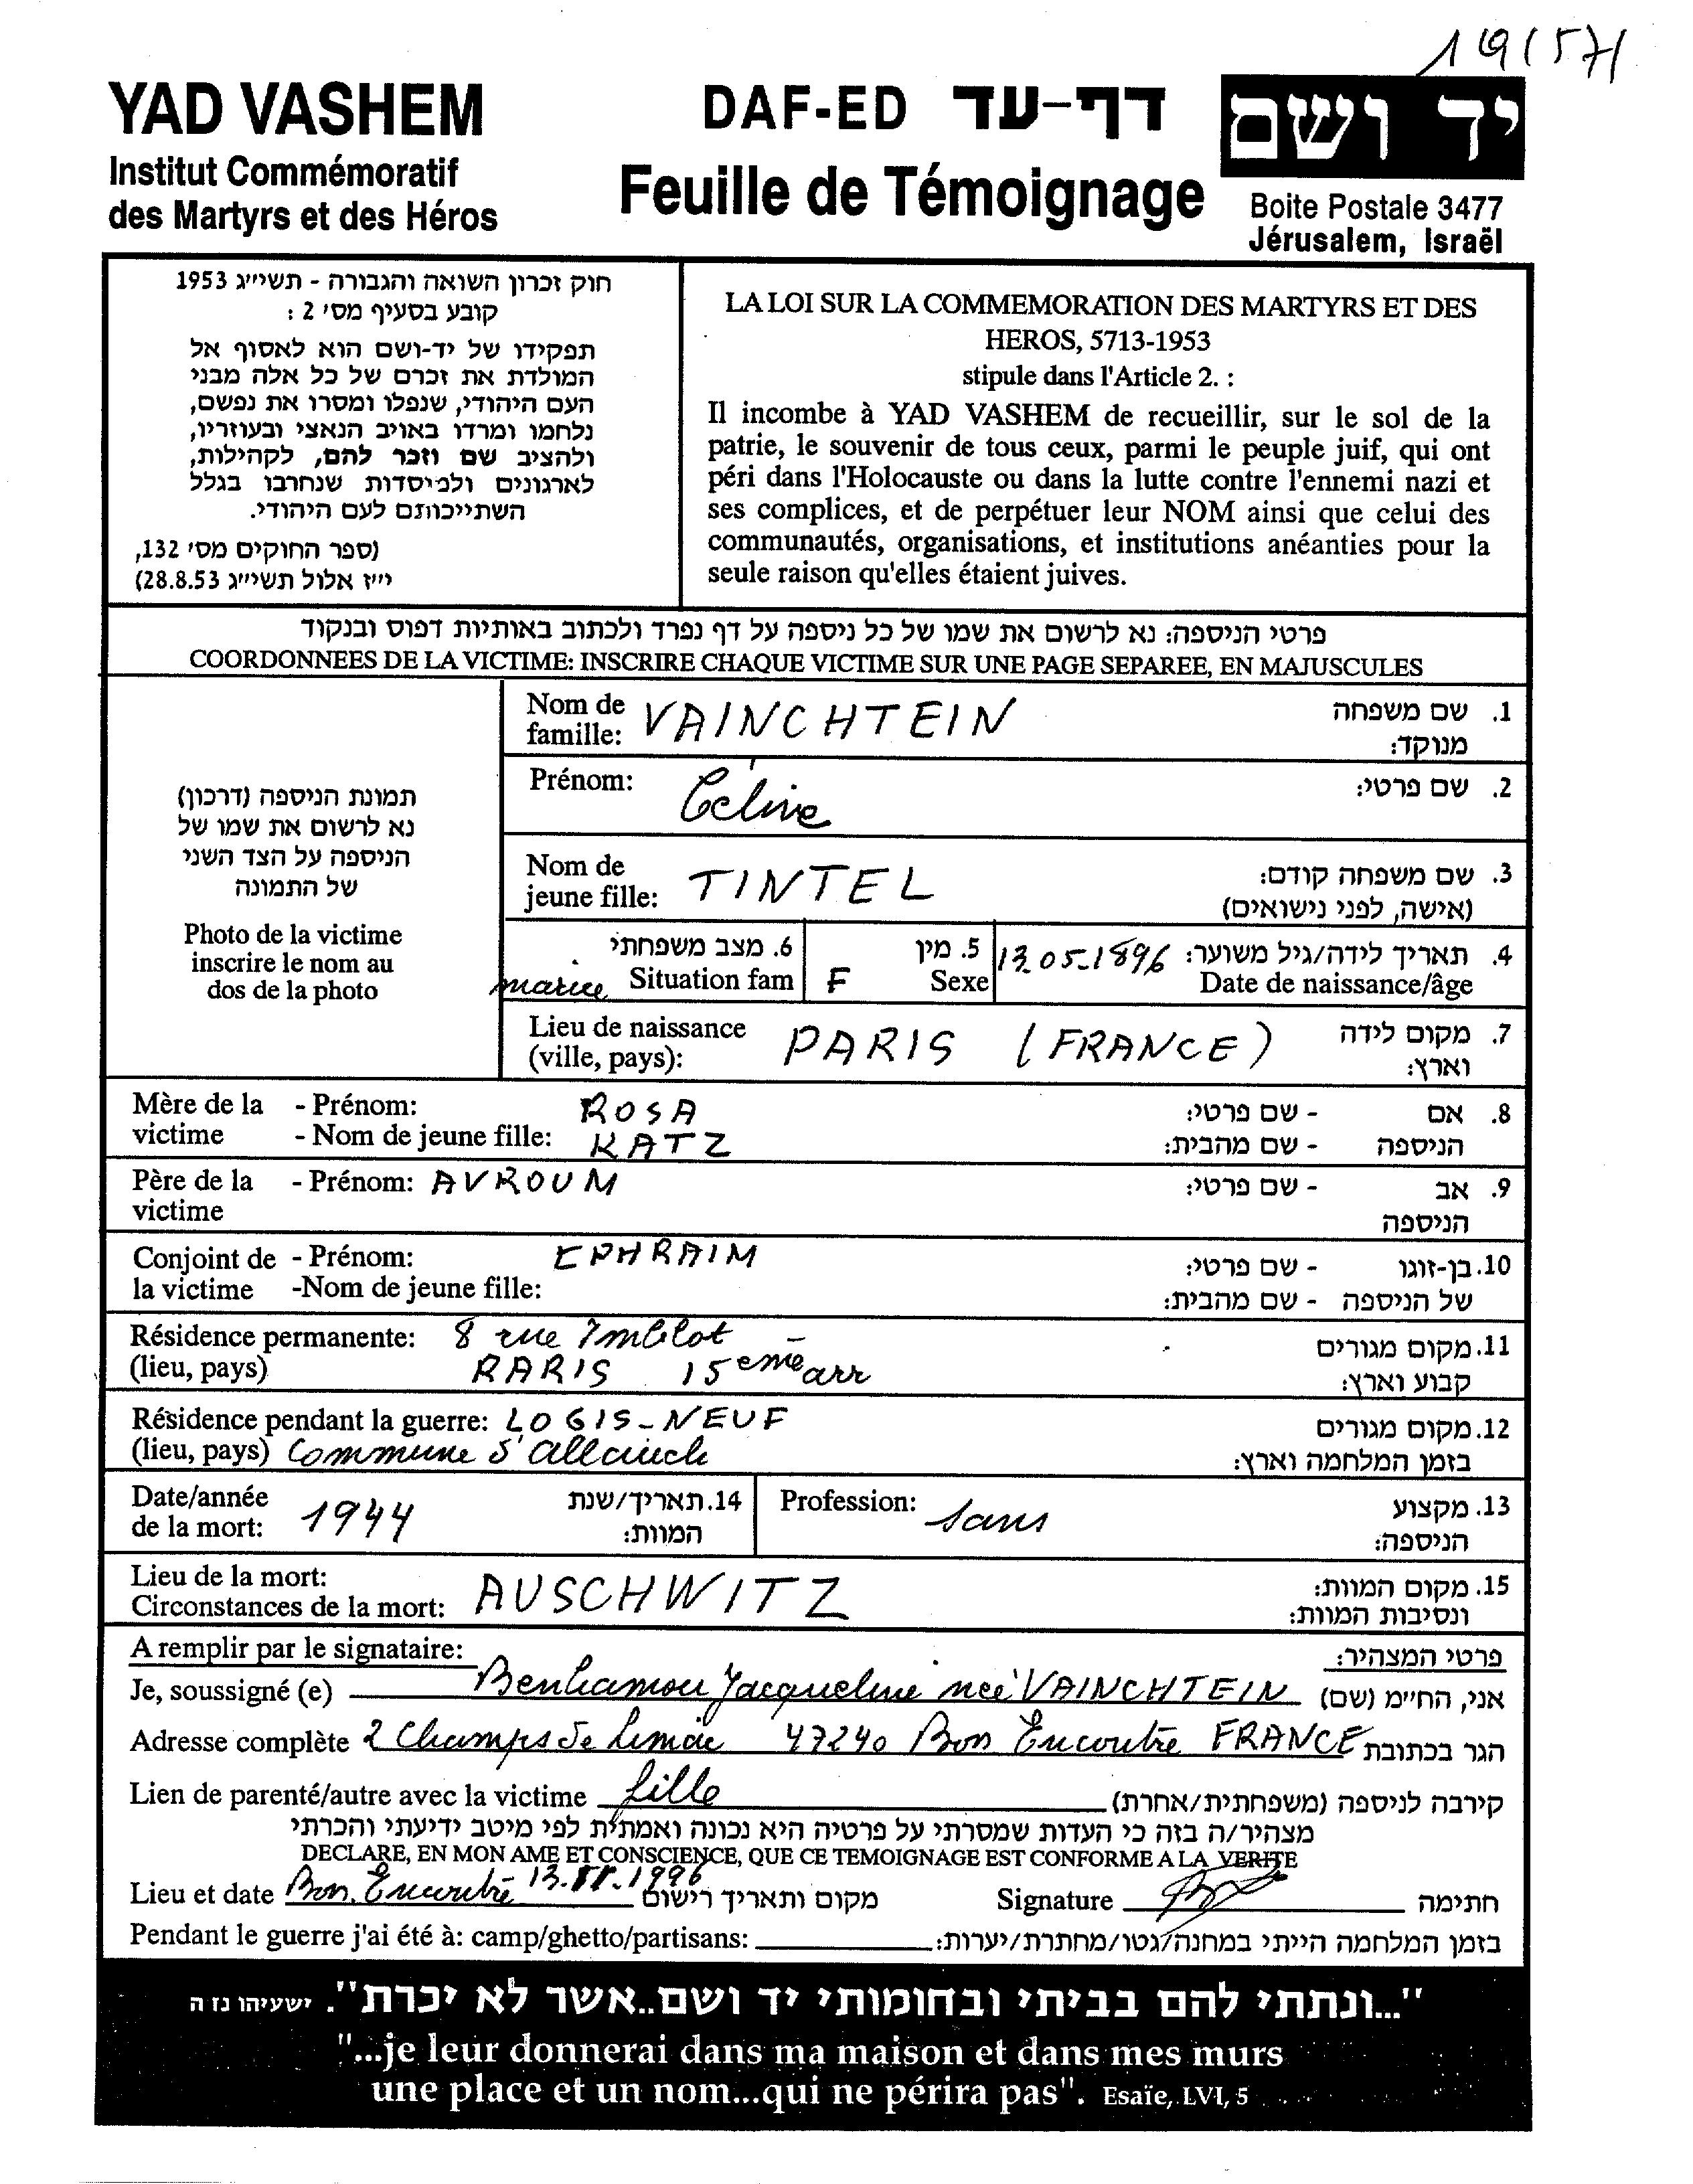 19(57)
YAD VASHEM
Institut Commémoratif
des Martyrs et des Héros
DAF-ED דף-עד
Feuille de Témoignage
יד ושם
Boite Postale 3477
Jérusalem, Israël
חוק זכרון השואה והגבורה - תשי״ג 1953
קובע בסעיף מס׳ 2 :
תפקידו של יד-ושם הוא לאסוף אל
המולדת את זכרם של כל אלה מבני
העם היהודי, שנפלו ומסרו את נפשם,
נלחמו ומרדו באויב הנאצי ובעוזריו,
ולהציב שם וזכר להם, לקהילות,
לארגונים ולמוסדות שנחרבו בגלל
השתייכותם לעם היהודי.
(ספר החוקים מס׳ 132,
י״ז אלול תשי״ג 28.8.53)
LA LOI SUR LA COMMEMORATION DES MARTYRS ET DES
HEROS, 5713-1953
stipule dans l'Article 2. :
Il incombe à YAD VASHEM de recueillir, sur le sol de la
patrie, le souvenir de tous ceux, parmi le peuple juif, qui ont
péri dans l'Holocauste ou dans la lutte contre l'ennemi nazi et
ses complices, et de perpétuer leur NOM ainsi que celui des
communautés, organisations, et institutions anéanties pour la
seule raison qu'elles étaient juives.
פרטי הניספה: נא לרשום את שמו של כל ניספה על דף נפרד ולכתוב באותיות דפוס ובנקוד
COORDONNEES DE LA VICTIME: INSCRIRE CHAQUE VICTIME SUR UNE PAGE SEPAREE, EN MAJUSCULES
תמונת הניספה (דרכון)
נא לרשום את שמו של
הניספה על הצד השני
של התמונה
Photo de la victime
inscrire le nom au
dos de la photo
Nom de VAINCHTEIN 1. שם משפחה
famille: מנוקד:
Prénom: Céline 2. שם פרטי:
Nom de TINTEL 3. שם משפחה קודם:
jeune fille: (אישה, לפני נישואים)
6. מצב משפחתי 5. מין 13.05.1896 4. תאריך לידה/גיל משוער:
mariée Situation fam F Sexe Date de naissance/âge
Lieu de naissance PARIS (FRANCE) 7. מקום לידה
(ville, pays): וארץ:
Mère de la - Prénom: ROSA - שם פרטי: 8. אם
victime - Nom de jeune fille: KATZ - שם מהבית: הניספה
Père de la - Prénom: AVROUM - שם פרטי: 9. אב
victime הניספה
Conjoint de - Prénom: EPHRAIM - שם פרטי: 10. בן-זוגו
la victime -Nom de jeune fille: - שם מהבית: של הניספה
Résidence permanente: 8 rue Imblot 11. מקום מגורים
(lieu, pays) PARIS 15eme arr קבוע וארץ:
Résidence pendant la guerre: LOGIS-NEUF 12. מקום מגורים
(lieu, pays) Commune d'allauch בזמן המלחמה וארץ:
Date/année 1944 14. תאריך/שנת Profession: sans 13. מקצוע
de la mort: המוות: הניספה:
Lieu de la mort: AUSCHWITZ 15. מקום המוות:
Circonstances de la mort: ונסיבות המוות:
A remplir par le signataire: פרטי המצהיר:
Je, soussigné (e) Benhamou Jacqueline née VAINCHTEIN אני, החי״מ (שם)
Adresse complète 2 Champs de 47240 Bon Encontre FRANCE הגר בכתובת
Lien de parenté/autre avec la victime fille קירבה לניספה (משפחתית/אחרת)
מצהיר/ה בזה כי העדות שמסרתי על פרטיה היא נכונה ואמתית לפי מיטב ידיעתי והכרתי
DECLARE, EN MON AME ET CONSCIENCE, QUE CE TEMOIGNAGE EST CONFORME A LA VERITE
Lieu et date Bon Encontre 13. .1996 מקום ותאריך רישום Signature חתימה
Pendant le guerre j'ai été à: camp/ghetto/partisans: בזמן המלחמה הייתי במחנה/גטו/מחתרת/יערות:
"...ונתתי להם בביתי ובחומותי יד ושם..אשר לא יכרת". ישעיהו נז ה
"...je leur donnerai dans ma maison et dans mes murs
une place et un nom...qui ne périra pas". Esaïe, LVI, 5